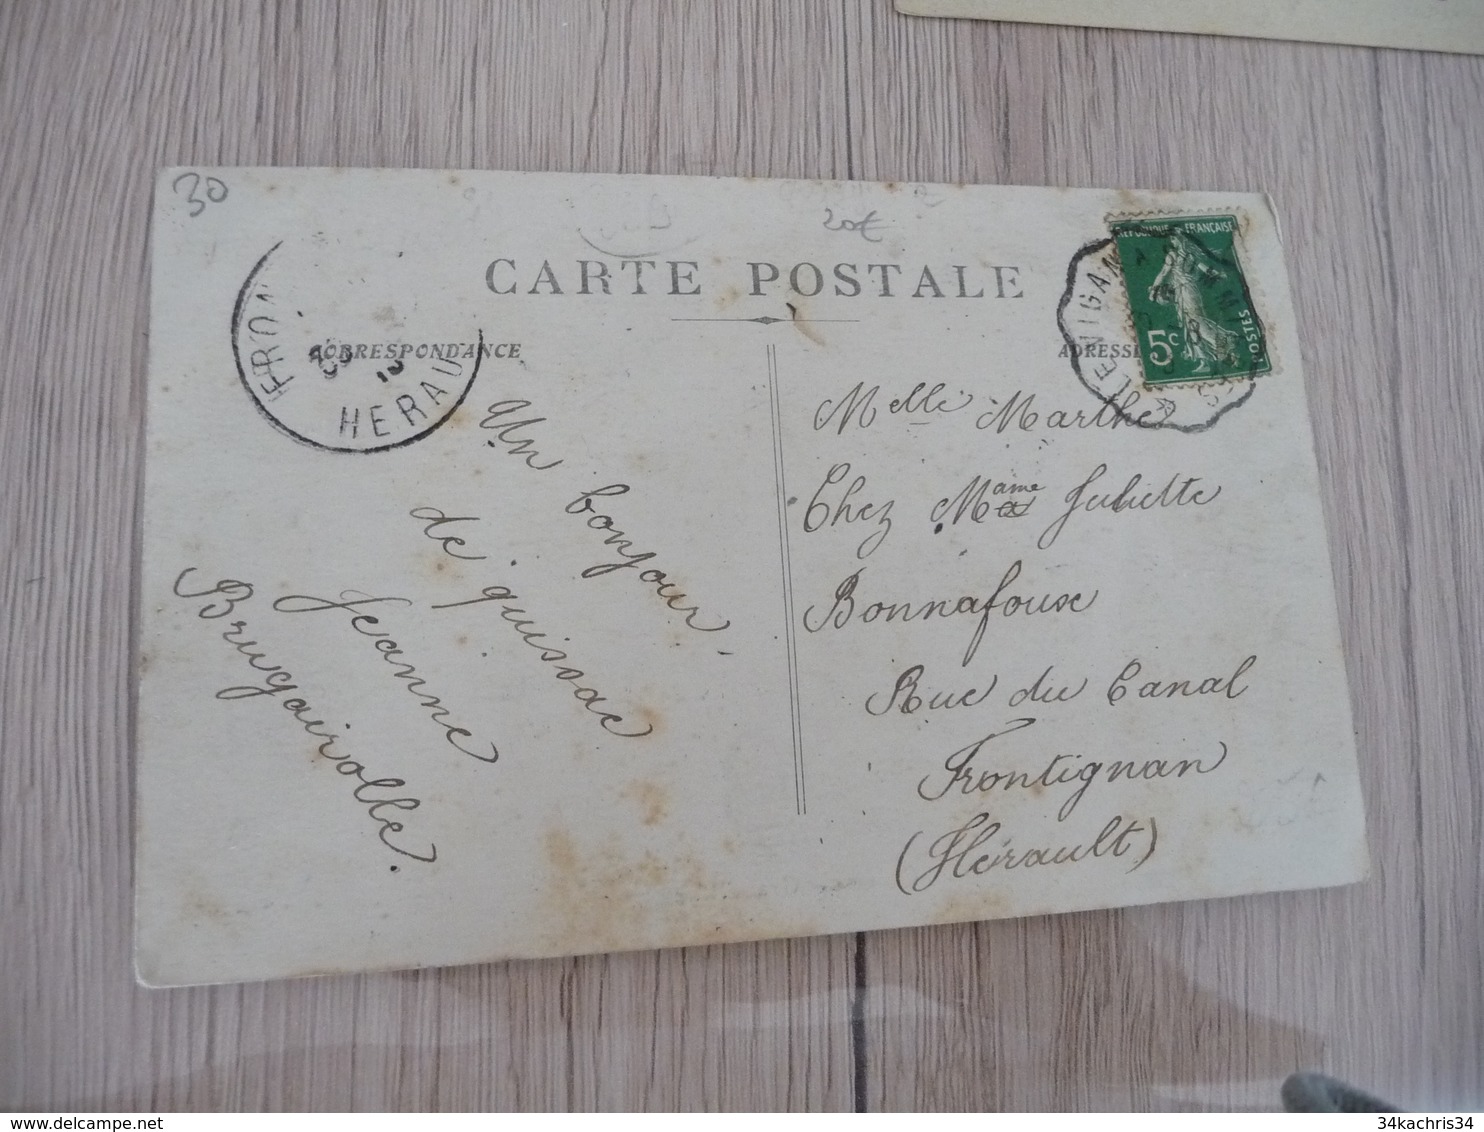 30
20€
CARTE POSTALE
CORRESPONDANCE
ADRESSE
FRON
HERAU
REPUBLIQUE FRANÇAISE
5c
POSTES
LE VIGAN A SOMMI
Un bonjour
de quissac
Jeanne
Brugairolle.
Melle Marthe
Chez Mame Juliette
Bonnafouse
Rue du Canal
Frontignan
(Hérault)
34kachris34
34kachris34